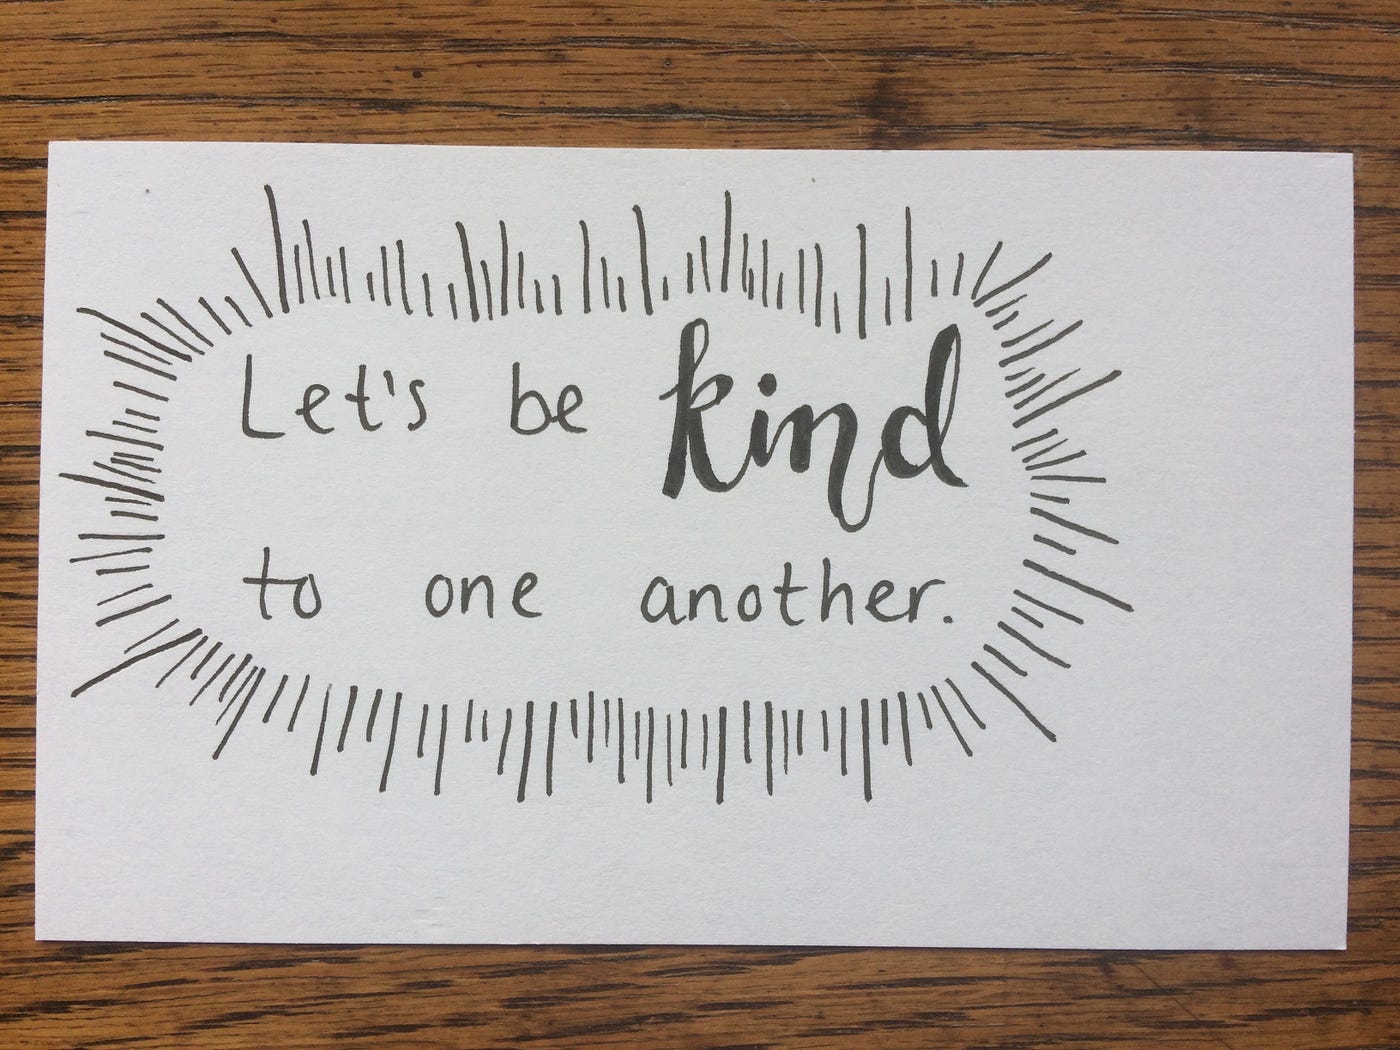 Let's be kind
to one another.